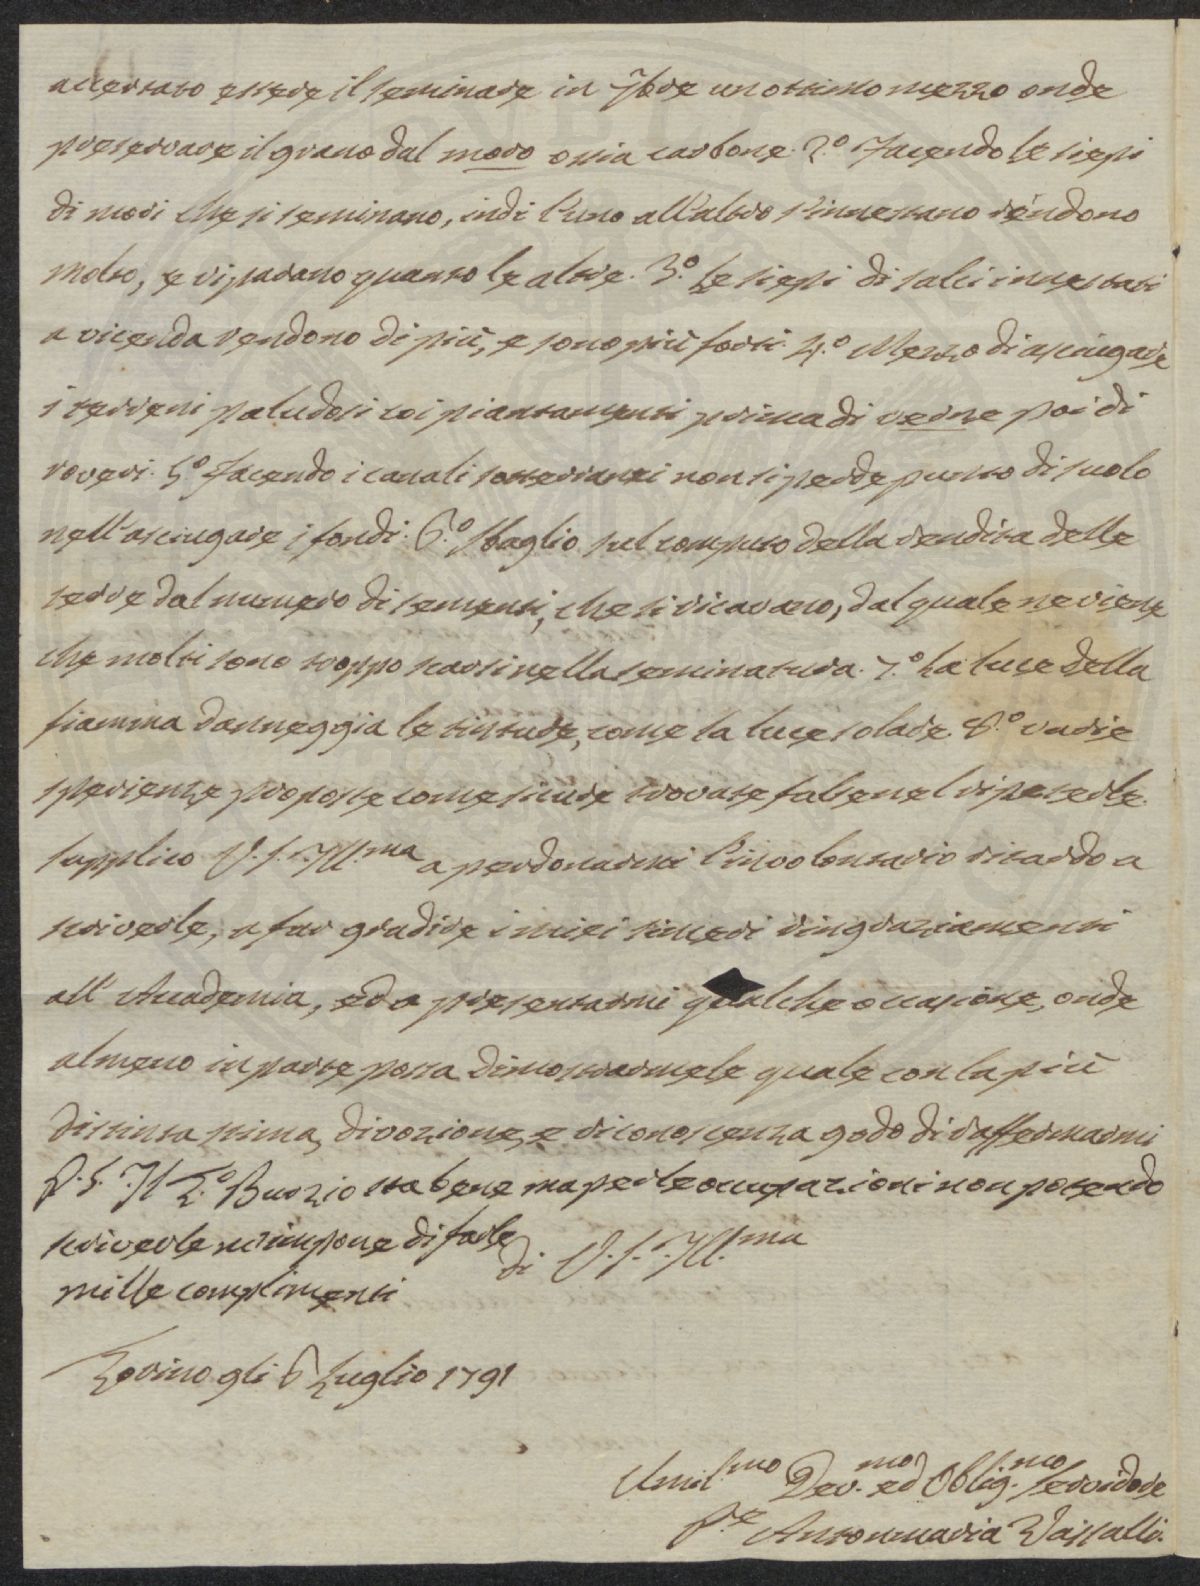 accertato essere il seminare in 7bre un ottimo mezzo onde
preservare il grano dal moro ossia carbone. 2.° Facendo le siepi
di mori che si seminano, indi l'uno all'altro s'innestano rendono
molto, e riparano quanto le altre. 3.° Le siepi di salci innestati
a vicenda rendono di più, e sono più forti. 4.° Mezzo di asciugare
i terreni paludosi coi piantamenti prima di verne poi di
roveri. 5.° Facendo i canali sotterranei non si perde punto di suolo
nell'asciugare i fondi. 6.° Sbaglio sul computo della rendita delle
terre dal numero di sementi, che si ricavano, dal quale ne viene
che molti sono troppo scarsi nella seminatura. 7.° La luce della
fiamma danneggia le tinture, come la luce solare. 8.° varie
sperienze proposte come sicure trovate false nel ripeterle.
Supplico V. S. Ill.ma a perdonarmi l'involontario ritardo a
scriverle, a far gradire i miei sinceri ringraziamenti
all'Accademia, ed a presentarmi qualche occasione, onde
almeno in parte possa dimostrarmele quale con la più
distinta stima, divozione, e riconoscenza godo di raffermarmi
P. S. Il Sr. Buozio sta bene ma per le occupazioni non potendo
scriverle m'impone di farle
di V. S. Ill.ma
mille complimenti
Torino gli 6 Luglio 1791
Umil.mo Dev.mo ed Oblig.mo Servidore
P.e Antonmaria Vassalli.